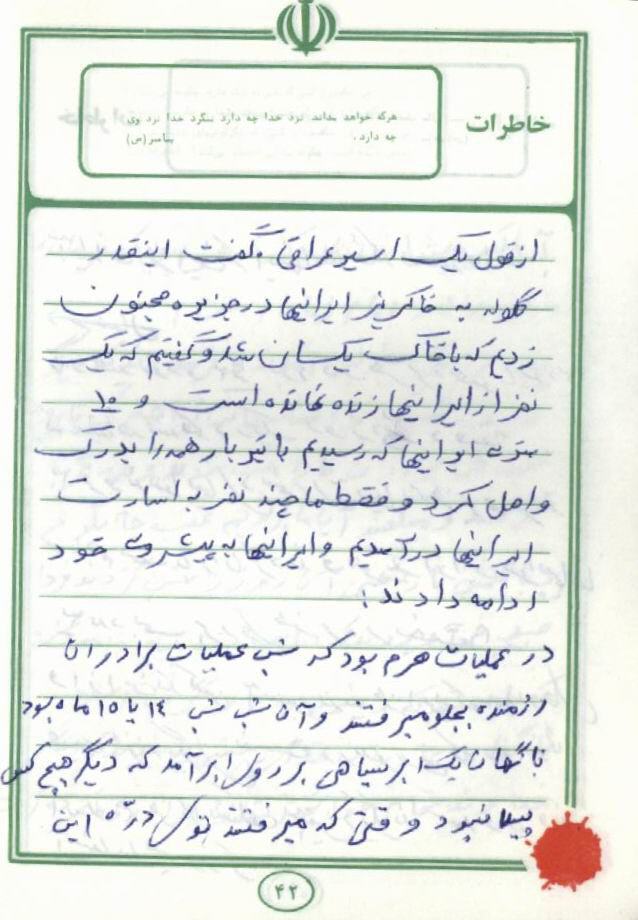 خاطرات
هرکه خواهد بداند نزد خدا چه دارد بنگرد خدا نزد وی
چه دارد. پیامبر(ص)
از قول یک اسیر عراقی گفت اینقدر
گلوله به خاکریز ایرانیها در جزیره مجنون
زدیم که با خاک یکسان شد و گفتیم که یک
نفر از ایرانیها زنده نمانده است و تا
سنگر ایرانیها که رسیدیم با تیربار همه را بدرک
واصل کرد و فقط ما چند نفر به اسارت
ایرانیها درآمدیم و ایرانیها به پیشروی خود
ادامه دادند:
در عملیات هرم بود که شب عملیات برادران
رزمنده بجلو میرفتند و آن شب شب ۱۴ یا ۱۵ ماه بود
ناگهان یک ابر سیاهی بر روی ابر آمد که دیگر هیچ کس
پیدا نبود وقتی که میرفتند توی دره این
۴۲